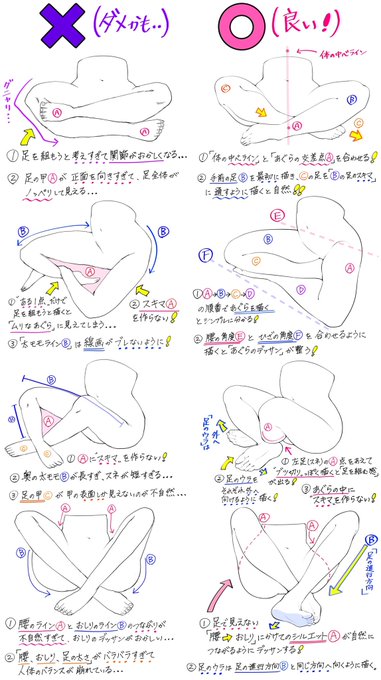 (ダメかも・・)
(良い!)
体の中心ライン
グニャリ・・・
A
A
C
B
A
C
①足を組もうと考えすぎて関節がおかしくなる・・・
②足の甲Ⓐが正面を向きすぎて、足全体が
ノッペリして見える・・・
①「体の中心ライン」と「あぐらの交差点Ⓐ」を合わせる!
②手前の足Ⓑを最初に描き、Ⓒの足を「Ⓑの足のスキマ」
に通すように描くと自然!
B
B
A
C
①"ある1点"だけで
足を組もうと描くと
「ムリなあぐら」に見えてしまう・・・
②スキマⒶ
を作らない!
③「太モモラインⒷ」は線画がブレないように!
E
B
F
C
A
D
①Ⓐ→Ⓑ→Ⓒ→Ⓓ
の順番であぐらを描く
とシンプルに分かる!
②腰の角度Ⓔとひざの角度Ⓕを合わせるように
描くとあぐらのデッサンが整う!
B
B
A
C
C
①Ⓐに"スキマ"を作らない!
②奥の太モモⒷが長すぎ、スネが短すぎる・・・
③足の甲Ⓒが甲の表面しか見えないのが不自然・・・
外へ
「足のウラは
A
①左足(スネ)のⒶをあえて
"ブツ切り"っぽく描くと「足を組む感」
が出る!
②足のウラを
それぞれ外へ
向けるように描く!
③あぐらの中に
"スキマ"を作らない!
A
A
B
B
①「腰のラインⒶとおしりのラインⒷ」のつながりが
不自然すぎて、おしりのデッサンがおかしい・・・
②「腰、おしり、足の太さ」がバラバラすぎて
人体のバランスが崩れている・・・
A
A
B
「足の進行方向」
①足で見えない
「腰➡おしり」にかけてのシルエットⒶが自然に
つながるようにデッサンする!
②足のウラは足の進行方向Ⓑと同じ方向へ向くように描く。